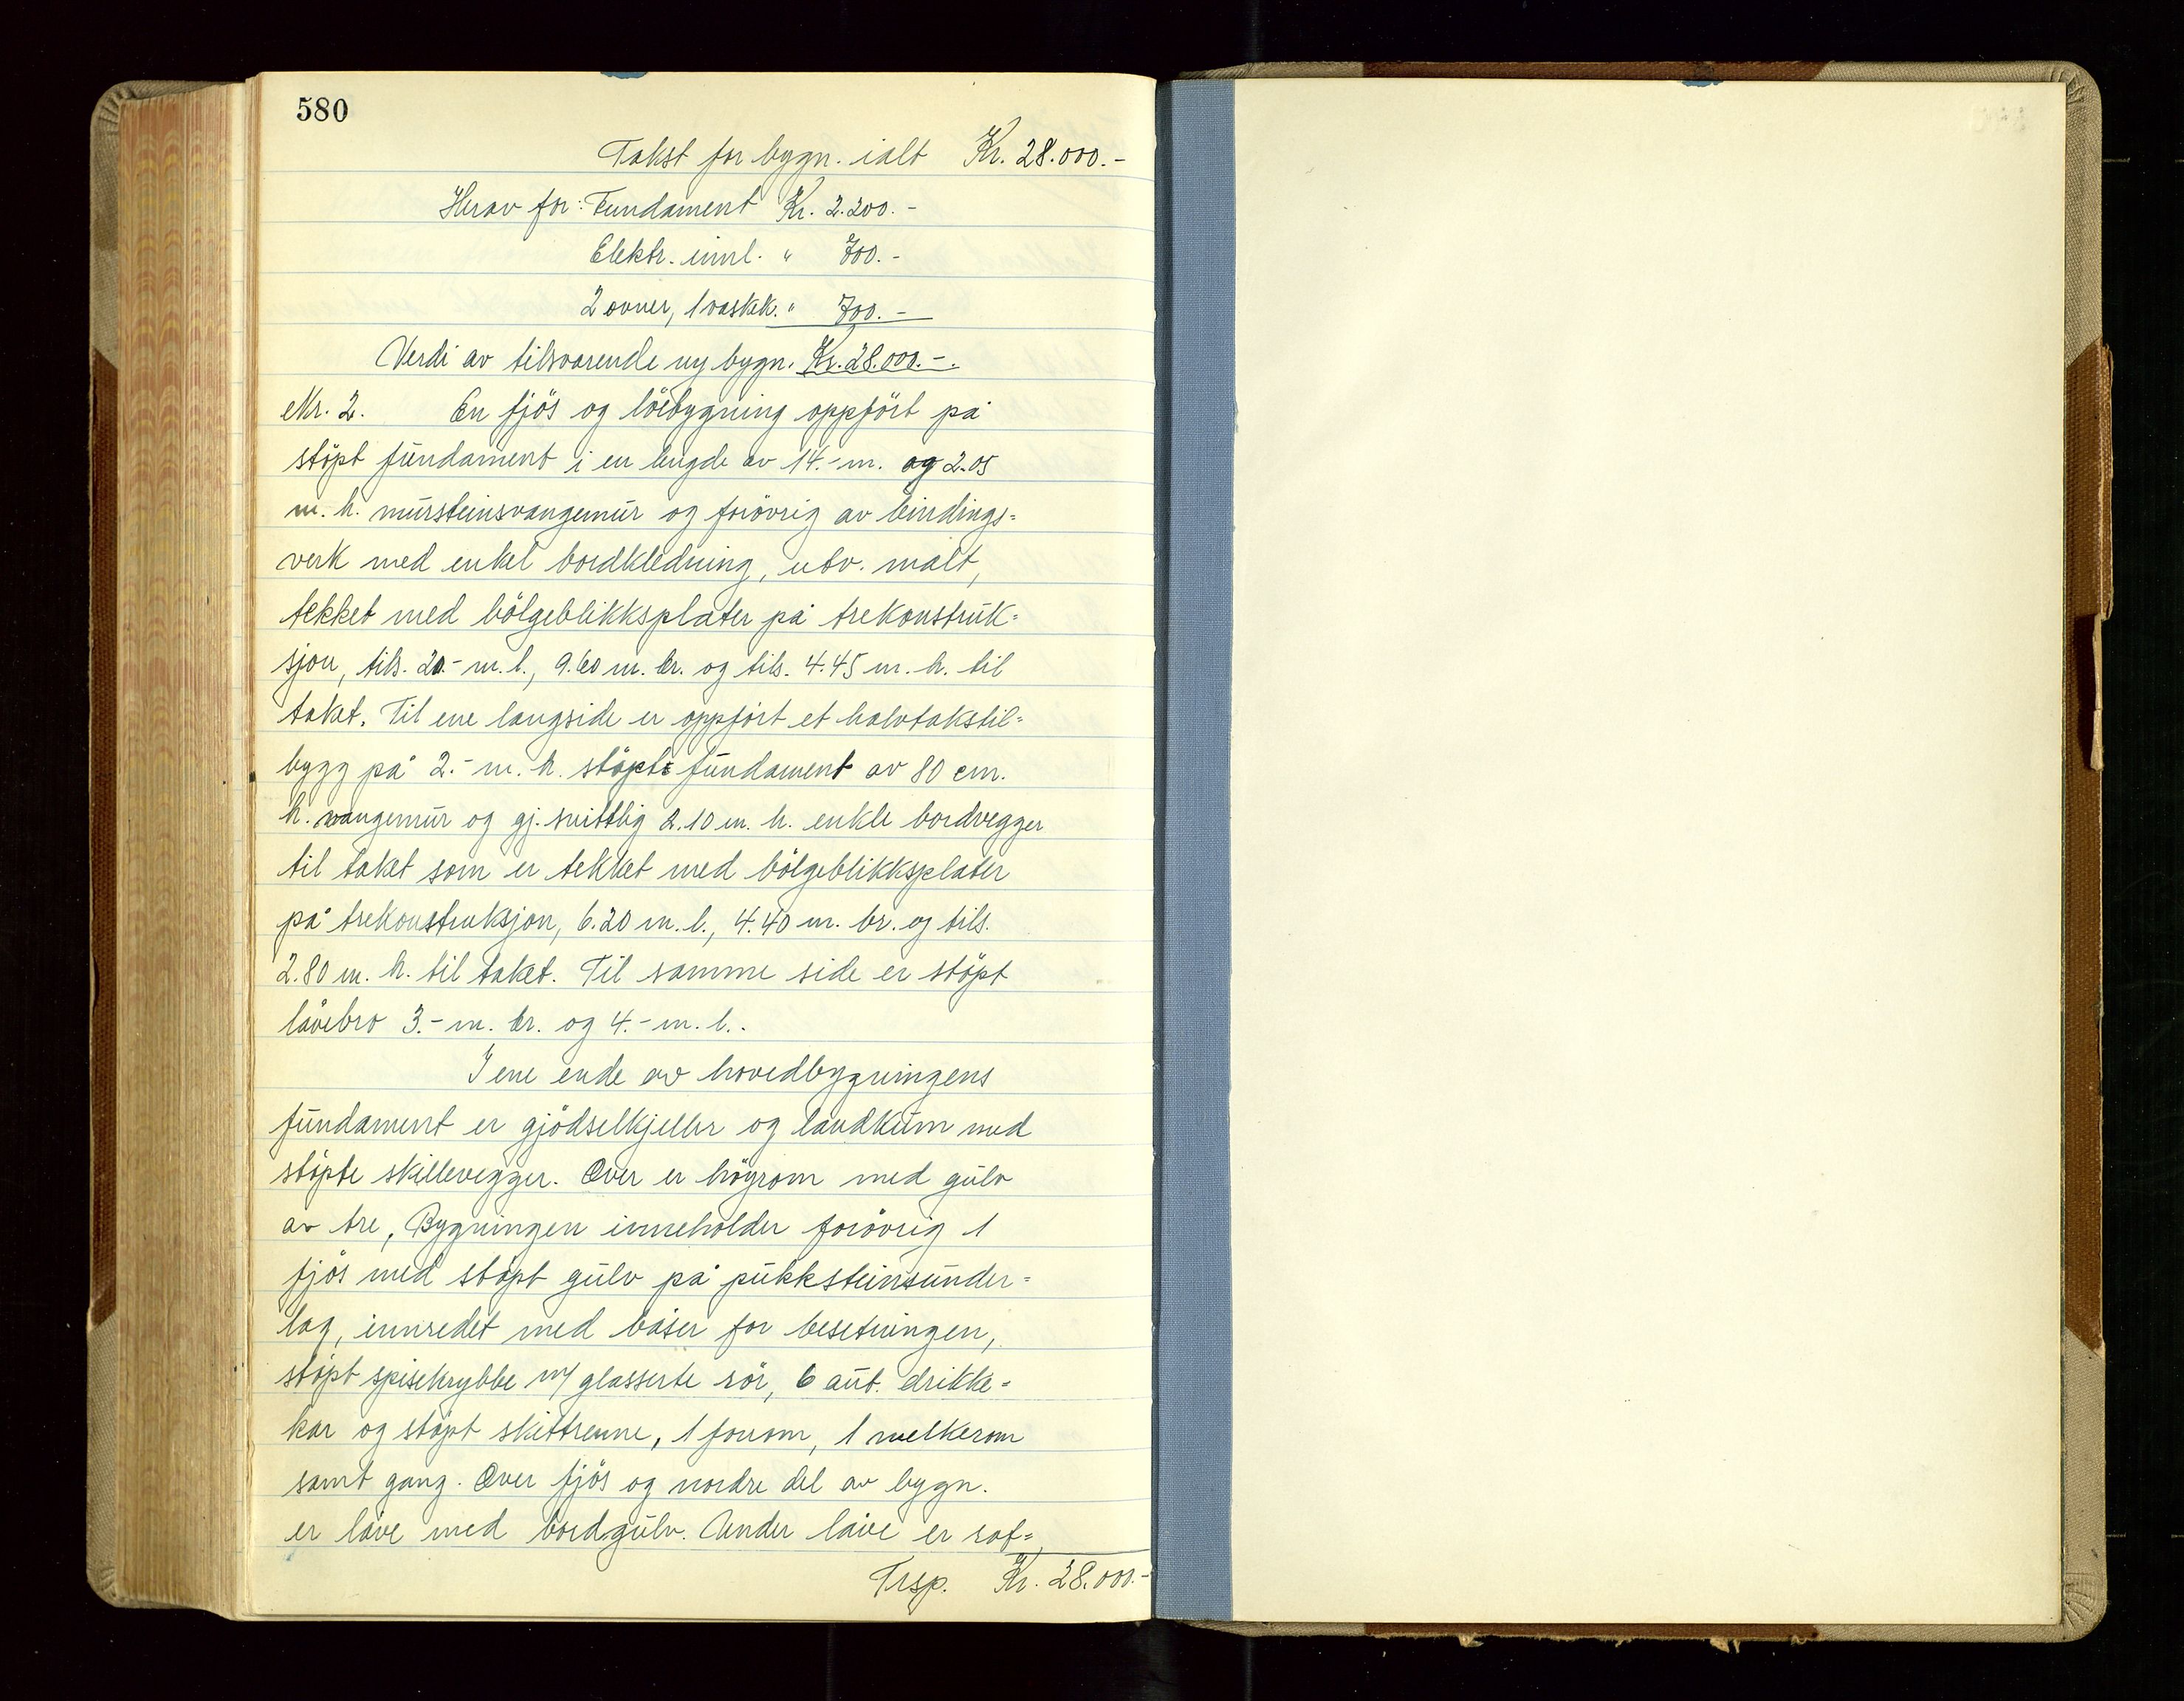 580
Takst for bygn. ialt Kr. 28.000.-
Herav for: Fundament Kr. 2.200.-
Elektr. innl. " 700.-
2 ovner, 1 vaskk. " 700.-
Verdi av tilsvarende ny bygn. Kr. 28.000.-.
Nr. 2. En fjös og löebygning oppfört på
stöpt fundament i en lengde av 14.- m. og 2.05
m. h. mursteinsvangemur og forövrig av bindings=
verk med enkel bordkledning, utv. malt,
tekket med bölgeblikksplater på trekonstruk=
sjon, tils. 20.- m. l., 9.60 m. br. og tils. 4.45 m. h. til
taket. Til ene langside er oppfört et halvtakstil=
bygg på 2.- m. h. stöpt fundament av 80 cm.
h. vangemur og gj.snittlig 2.10 m. h. enkle bordvegger
til taket som er tekket med bölgeblikksplater
på trekonstruksjon, 6.20 m. l., 4.40 m. br. og tils.
2.80 m. h. til taket. Til samme side er stöpt
låvebro 3.- m. br. og 4.- m. l..
I ene ende av hovedbygningens
fundament er gjödselkjeller og landkum med
stöpte skillevegger. Over er höyrom med gulv
av tre, Bygningen inneholder forövrig 1
fjös med stöpt gulv på pukksteinsunder=
lag, innredet med båser for besetningen,
stöpt spisekrybbe m/ glasserte rör, 6 aut. drikke=
kar og stöpt skittrenne, 1 forrom, 1 melkerom
samt gang. Over fjös og nordre del av bygn.
er låve med bordgulv. Under låve er rot=
Trsp. Kr. 28.000.-